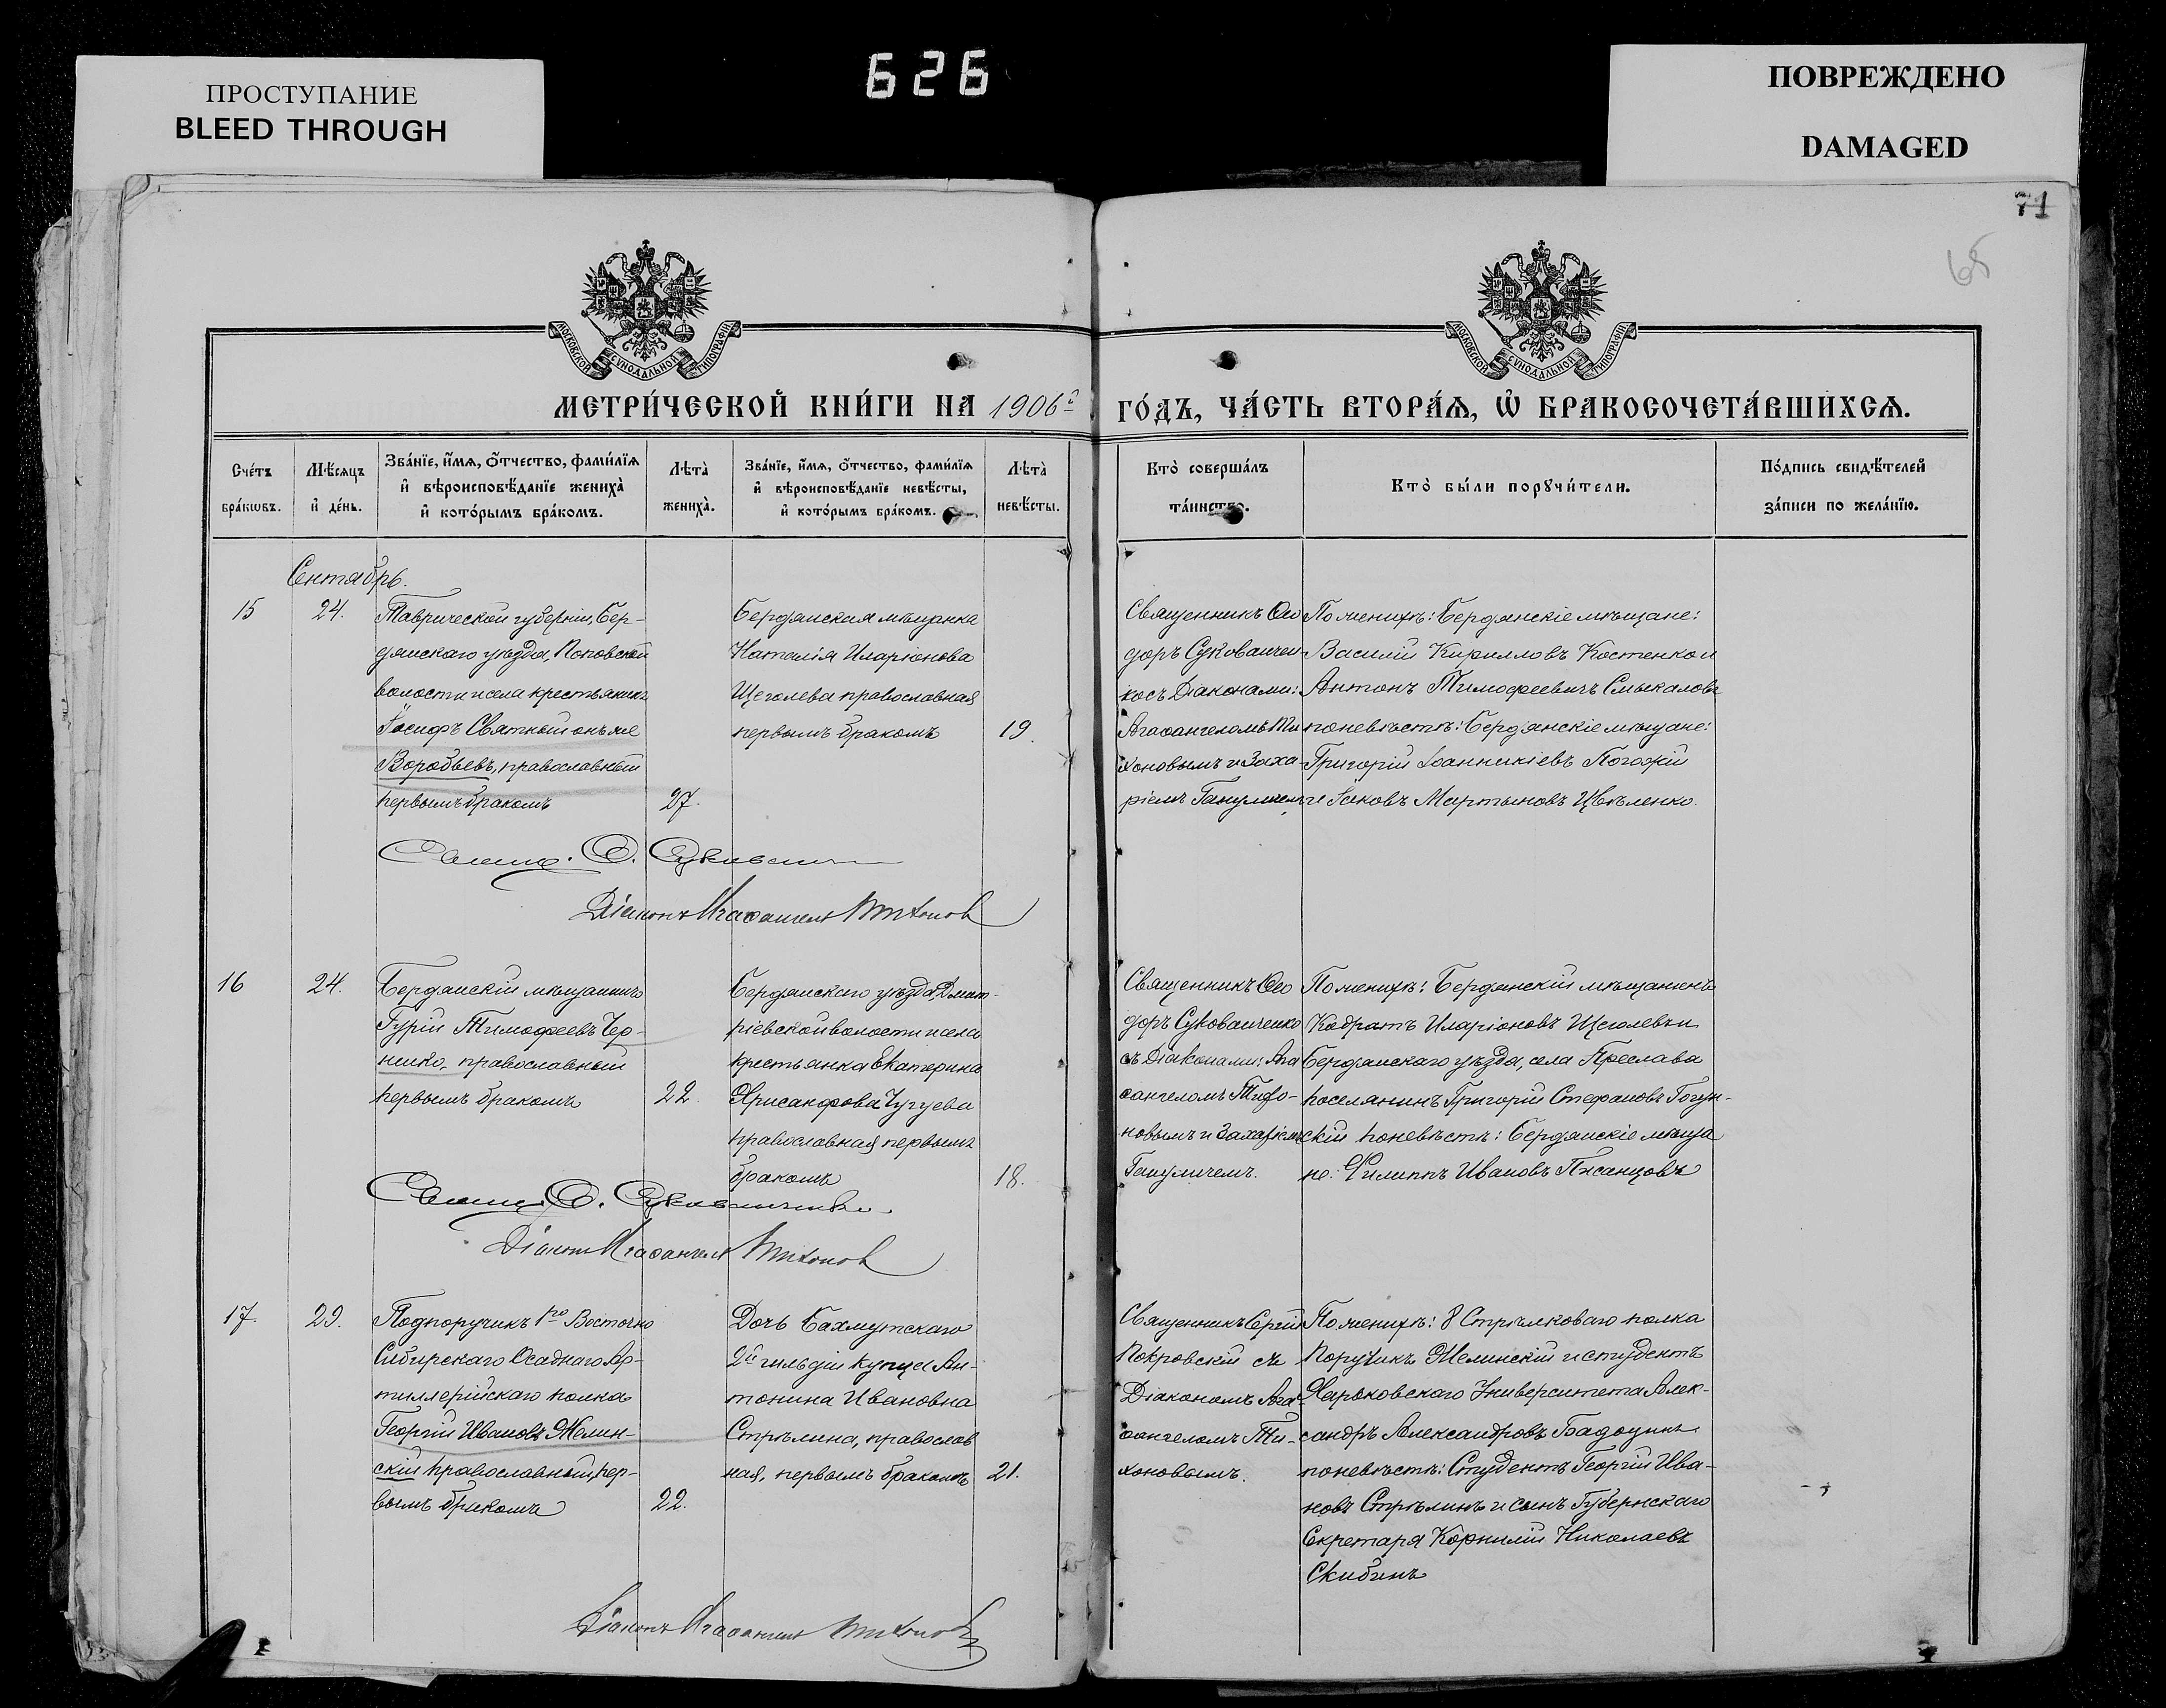 ПРОСТУПАНИЕ
BLEED THROUGH
626
ПОВРЕЖДЕНО
DAMAGED
71
68
МОСКОВСКОЙ СѴНОДАЛЬНОЙ ТИПОГРАФІИ
МОСКОВСКОЙ СѴНОДАЛЬНОЙ ТИПОГРАФІИ
МЕТРИ́ЧЕСКОЙ КНИ́ГИ НА 1906й
ГО́ДЪ, ЧА́СТЬ ВТОРА́Я, Ѡ БРАКОСОЧЕТА́ВШИХСЯ.
Сче́тъ
бра́кωвъ.
Мѣ́сяцъ
и҆ де́нь.
Зва́нїе, и҆́мя, ѻ҆́тчество, фами́лїя
и҆ вѣроисповѣ́данїе жениха̀
и҆ кото́рымъ бра́комъ.
Лѣта̀
жениха̀.
Зва́нїе, и҆́мя, ѻ҆́тчество, фами́лїя
и҆ вѣроисповѣ́данїе невѣ́сты,
и҆ кото́рымъ бра́комъ.
Лѣта̀
невѣ́сты.
Кто̀ соверша́лъ
та́инство.
Кто̀ бы́ли порꙋчи́тели.
По́дпись свидѣ́телей
за́писи по жела́нїю.
Сентябрь.
15
24.
Таврической губерніи, Бер-
дянскаго уѣзда, Поповской
волости и села крестьянинъ
Іосифъ Святный онъ же
Воробьевъ, православный
первымъ бракомъ
27.
Бердянская мѣщанка
Наталія Иларіонова
Щеголева православная
первымъ бракомъ
19.
Священникъ Ѳео
доръ Суковаичен
ко съ Діаконами:
Агаѳангеломъ Ти
хоновымъ и Заха-
ріемъ Гануличемъ
По женихѣ: Бердянскіе мѣщане:
Василій Кирилловъ Костенко и
Антонъ Тимофеевичъ Смыкаловъ
по невѣстѣ: Бердянскіе мѣщане:
Григорій Іоанникіевъ Погожій
и Іаковъ Мартыновъ Цвѣленко.
Свящ. Ѳ.
Діаконъ Агаѳангелъ Тихонов
16
24.
Бердянскій мѣщанинъ
Гурій Тимофеевъ Чер-
ненко, православный
первымъ бракомъ
22.
Бердянскаго уѣзда, Дмит-
ріевской волости и села
крестьянка Екатерина
Хрисанфова Чугуева
православная первымъ
бракомъ
18.
Священникъ Ѳео
доръ Суковаиченко
съ Діаконами: Ага
ѳангеломъ Тихо-
новымъ и Захаріемъ
Гануличемъ.
По женихѣ: Бердянскій мѣщанинъ
Кодратъ Иларіоновъ Щеголевъ и
Бердянскаго уѣзда, села Преслава
поселянинъ Григорій Стефановъ Гогун-
скій по невѣстѣ: Бердянскіе мѣща
не: Филиппъ Ивановъ Писанцовъ
Свящ. Ѳ.
Діаконъ Агаѳангелъ Тихонов
17.
29.
Подпоручикъ 1го Восточно
Сибирскаго Осаднаго Ар-
тиллерійскаго полка
Георгій Ивановъ Желин-
скій православный, пер-
вымъ бракомъ
22.
Дочь Бахмутскаго
2й гильдіи купца Ан-
тонина Ивановна
Стрѣлина, православ
ная, первымъ бракомъ
21.
Священникъ Сергій
Покровскій съ
Діакономъ Ага-
ѳангеломъ Ти-
хоновымъ.
По женихѣ: 8 Стрѣлковаго полка
Поручикъ Желинскій и студентъ
Харьковскаго Университета Алек-
сандръ Александровъ
по невѣстѣ: Студентъ Георгій Ива-
новъ Стрѣлинъ и сынъ Губернскаго
Секретаря Корнилій Николаевъ
Скибинъ
Діаконъ Агаѳангелъ Тихонов